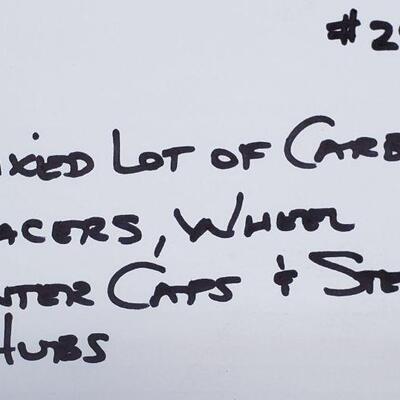 #2
ixed Lot of Carb
acers, Wheel
nter Caps & Ste
Hubs